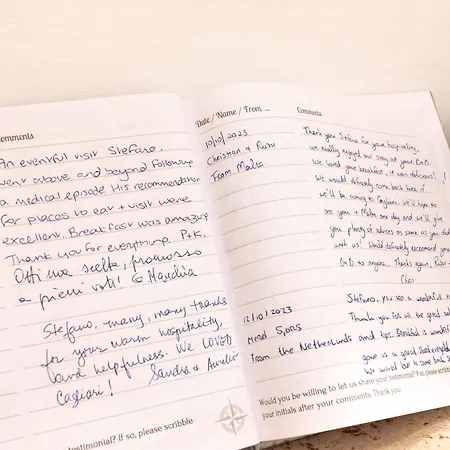 Comments
An eventful visit Stefano.
went above and beyond following
a medical episode His recommendation
for places to eat + visit were
excellent. Breakfast was amazing
Thank you for everything. P+K.
Ottima scelta, promosso
a pieni voti!
Stefano, many, many thanks
for your warm hospitality,
and helpfulness. We LOVED
Cagliari! Sandra &
testimonial? If so, please scribble
Date / Name / From ...
10/10/2023
Christian & Ruth
From Malta
12/10/2023
From the Netherlands
Comments
Thank you Stefano for your hospitality.
We really enjoyed our stay at your B&B.
We loved your breakfast, it was delicious!
We would definitely come back here if
we'll be coming to Cagliari. We'll hope to
see you in Malta one day and we'll give
you plenty of advices as same as you did
with us! Would definitely recommend your
B&B to anyone. Thanks again,
Stefano, you are a wonderful
Thank you for all the good
and tips. Breakfast is wonderful
gave us a good
We would love to come back
Would you be willing to let us share your testimonial? If so, please scribble
your initials after your comments. Thank you.